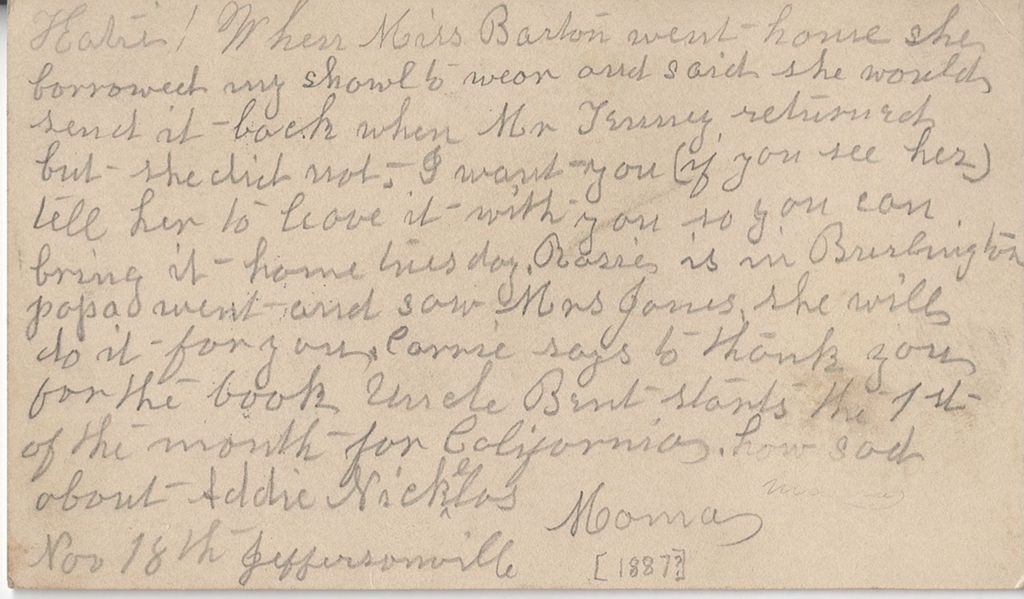 Hatie! When Miss Barton went home she
borrowed my showl to wear and said she would
send it back when Mr Tenney returned
but she did not, I want you (if you see her)
tell her to leave it with you so you can
bring it home tuesday. Rosie is in Burlington
papa went and saw Mrs Jones, she will
do it for you, Carrie says to thank you
for the book Uncle Bent starts the 1st
of the month for California. how sad
about Addie Nickelas
Moma
Nov 18th Jeffersonville
[1887?]